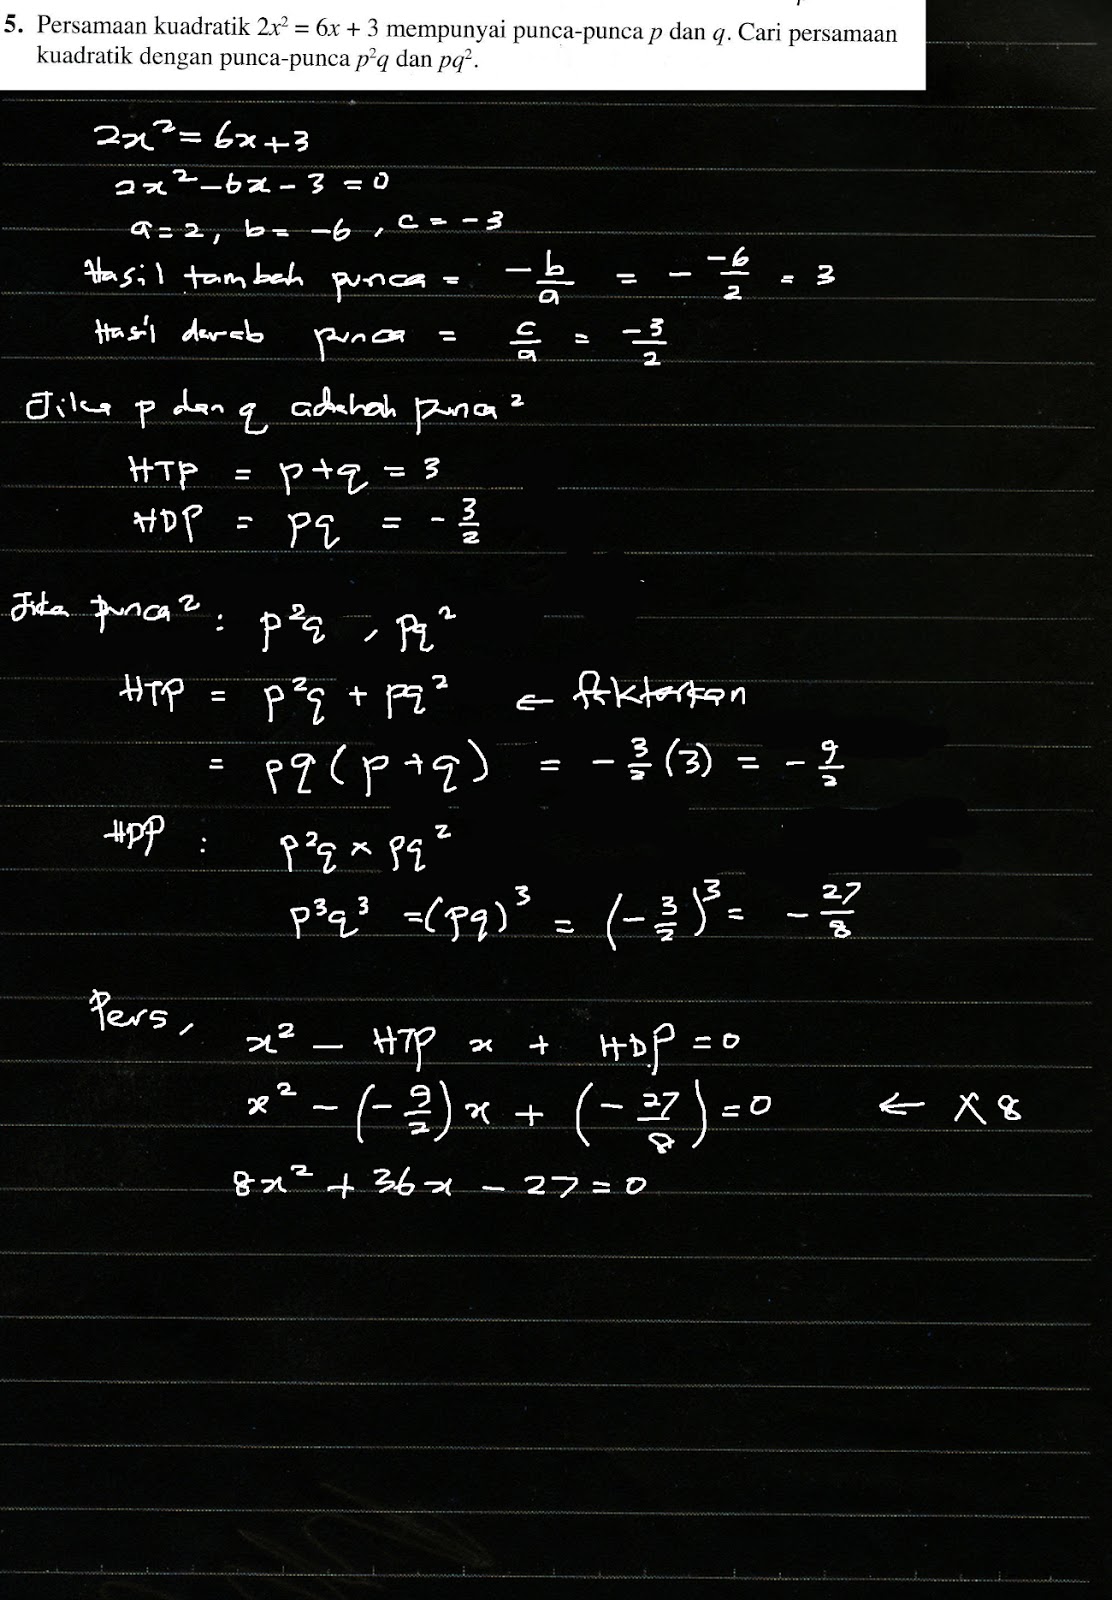 5. Persamaan kuadratik 2x² = 6x + 3 mempunyai punca-punca p dan q. Cari persamaan
kuadratik dengan punca-punca p²q dan pq².
2x² = 6x + 3
2x² - 6x - 3 = 0
a = 2, b = -6, c = -3
Hasil tambah punca = -b/a = - -6/2 = 3
Hasil darab punca = c/a = -3/2
Jika p dan q adalah punca²
HTP = p + q = 3
HDP = pq = -3/2
Jika punca² : p²q , pq²
HTP = p²q + pq² ← faktorkan
= pq(p + q) = -3/2 (3) = -9/2
HDP : p²q × pq²
p³q³ = (pq)³ = (-3/2)³ = -27/8
Pers,
x² - HTP x + HDP = 0
x² - (-9/2)x + (-27/8) = 0 ← × 8
8x² + 36x - 27 = 0